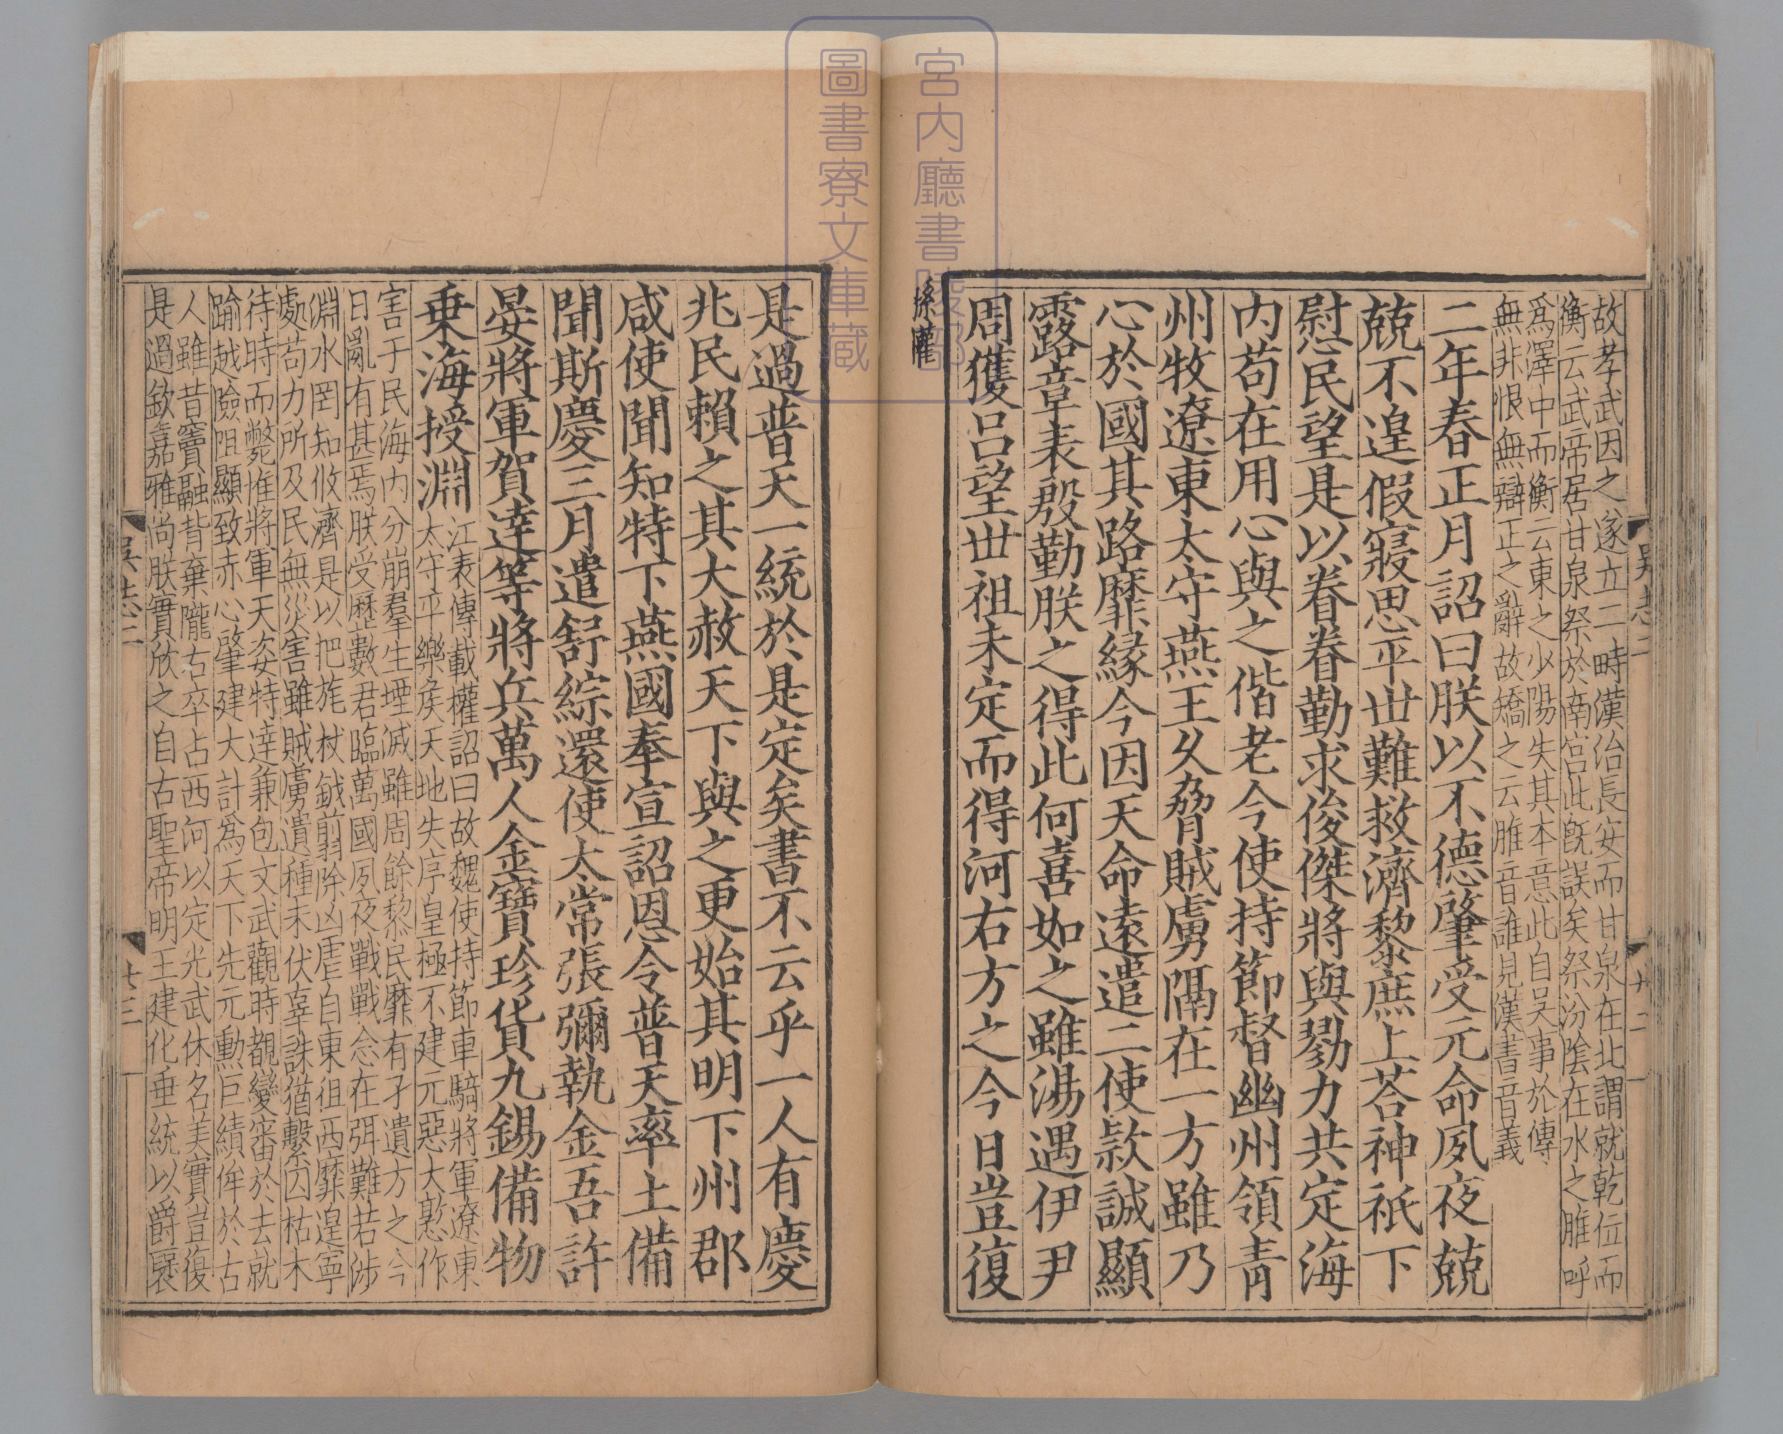 故孝武因之遂立二時漢治長安而甘泉在北謂就乾位而
衡云武帝居甘泉祭於南宮此旣誤矣祭汾隂在水之脽呼
爲澤中而衡云東之少陽失其本意此自吴事於傳
無非恨無辯正之辭故矯之云脽音誰見漢書音義
二年春正月詔曰朕以不德肇受元命夙夜兢
兢不遑假寢思平丗難救濟黎庶上荅神祇下
慰民望是以眷眷勤求俊傑將與勠力共定海
内苟在用心與之偕老今使持節督幽州領青
州牧遼東太守燕王久脅賊虜隔在一方雖乃
心於國其路靡緣今因天命遠遣二使欵誠顯
露章表殷勤朕之得此何喜如之雖湯遇伊尹
周獲吕望丗祖未定而得河右方之今日豈復
孫權
是過普天一統於是定矣書不云乎一人有慶
兆民賴之其大赦天下與之更始其明下州郡
咸使聞知特下燕國奉宣詔恩令普天率土備
聞斯慶三月遣舒綜還使太常張彌執金吾許
晏將軍賀達等將兵萬人金寶珍貨九錫備物
乗海授淵
江表傳載權詔曰故魏使持節車騎將軍遼東
太守平樂矦天地失序皇極不建元惡大憝作
害于民海内分崩羣生堙滅雖周餘黎民靡有孑遺方之今
日亂有甚焉朕受歷數君臨萬國夙夜戰戰念在弭難若涉
淵水罔知攸濟是以把旄杖鉞翦除凶虐自東徂西靡遑寧
處苟力所及民無災害雖賊虜遺種未伏辜誅猶繫囚枯木
待時而斃惟將軍天姿特達兼包文武觀時覩變審於去就
踰越險阻顯致赤心肇建大計爲天下先元勳巨績侔於古
人雖昔竇融背棄隴右卒占西河以定光武休名美實豈復
是過欽嘉雅尚朕實欣之自古聖帝明王建化垂統以爵襃
吴志二
廿二
吴志二
廿三
宮内廳書陵部
圖書寮文庫蔵